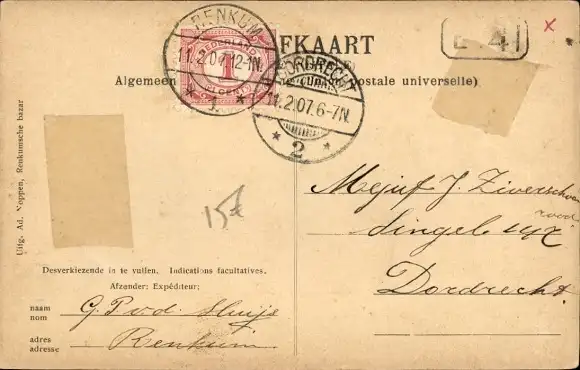 RENKUM
FKAART
E 4
NEDERLAND
11.2.07.12-1N
1
CENT
DORDRECHT
Algemeene Postale universelle)
11.2.07.6-7N.
* 1. *
* 2 *
Mejuf J. Ziverschoon
Singel
Dordrecht.
15t
Uitg. Ad. Noppen, Renkumsche bazar
Desverkiezende in te vullen. Indications facultatives.
Afzender: Expéditeur:
naam
nom
G.P.v.d. Sluijs
adres
adresse
Renkum.